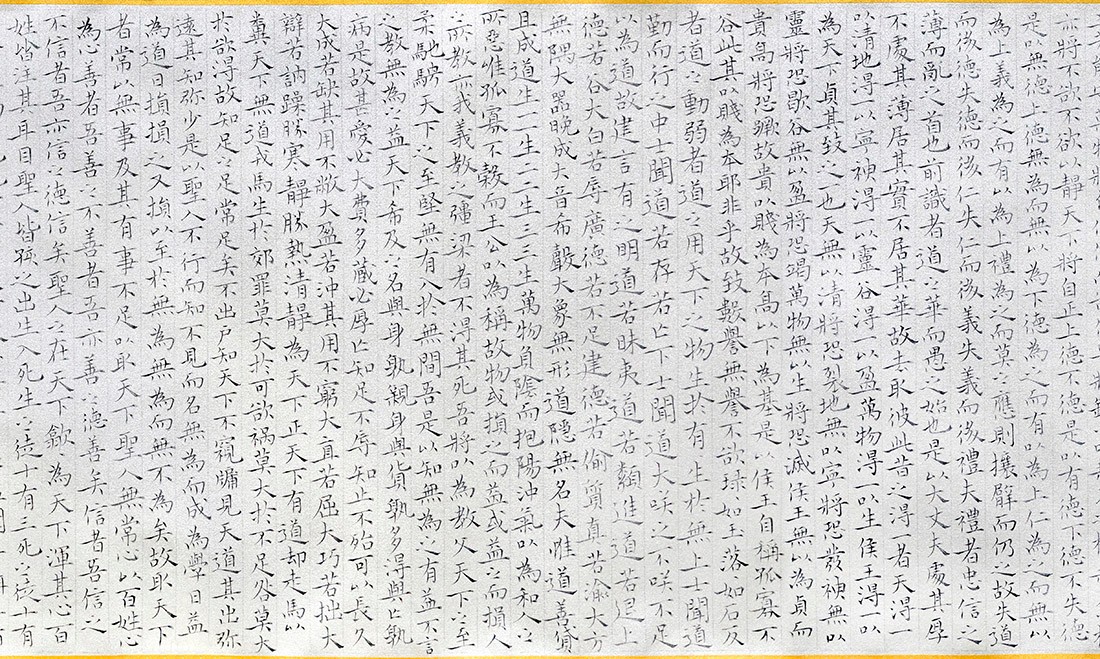 亦將不欲不欲以靜天下將自正上德不德是以有德下德不失德
是以無德上德無為而無以為下德為之而有以為上仁為之而無以
為上義為之而有以為上禮為之而莫之應則攘臂而仍之故失道
而後德失德而後仁失仁而後義失義而後禮夫禮者忠信之
薄而亂之首也前識者道之華而愚之始也是以大丈夫處其厚
不處其薄居其實不居其華故去取彼此昔之得一者天得一
以清地得一以寧神得一以靈谷得一以盈萬物得一以生侯王得一以
為天下貞其致之也天無以清將恐裂地無以寧將恐發神無以
靈將恐歇谷無以盈將恐竭萬物無以生將恐滅侯王無以為貞而
貴高將恐蹶故貴以賤為本高以下為基是以侯王自稱孤寡不
谷此其以賤為本耶非乎故致數譽無譽不欲琭〻如玉落〻如石反
者道之動弱者道之用天下之物生於有〻生於無上士聞道
勤而行之中士聞道若存若亡下士聞道大咲之不咲不足
以為道故建言有之明道若昧夷道若纇進道若退上
德若谷大白若辱廣德若不足建德若偷質真若渝大方
無隅大器晚成大音希聲大象無形道隱無名夫惟道善貸
且成道生一〻生二〻生三〻生萬物負陰而抱陽沖氣以為和人之
所惡惟孤寡不穀而王公以為稱故物或損之而益或益之而損人
之所教亦我義教之彊梁者不得其死吾將以為教父天下之至
柔馳騁天下之至堅無有入於無間吾是以知無為之有益不言
之教無為之益天下希及之名與身孰親身與貨孰多得與亡孰
病是故甚愛必大費多藏必厚亡知足不辱知止不殆可以長久
大成若缺其用不敝大盈若沖其用不窮大直若屈大巧若拙大
辯若訥躁勝寒靜勝熱清靜為天下正天下有道却走馬以
糞天下無道戎馬生於郊罪莫大於可欲禍莫大於不足咎莫大
於欲得故知足之足常足矣不出戶知天下不窺牖見天道其出彌
遠其知彌少是以聖人不行而知不見而名無為而成為學日益
為道日損損之又損以至於無為無為而無不為矣故取天下
者常以無事及其有事不足以取天下聖人無常心以百姓心
為心善者吾善之不善者吾亦善之德善矣信者吾信之
不信者吾亦信之德信矣聖人之在天下歙〻為天下渾其心百
姓皆注其耳目聖人皆孩之出生入死生之徒十有三死之徒十有